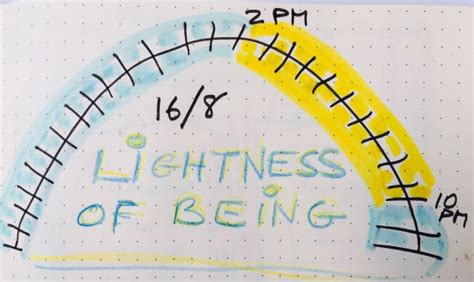 2 PM
16/8
LiGHTNESS
OF BEING
10
PM